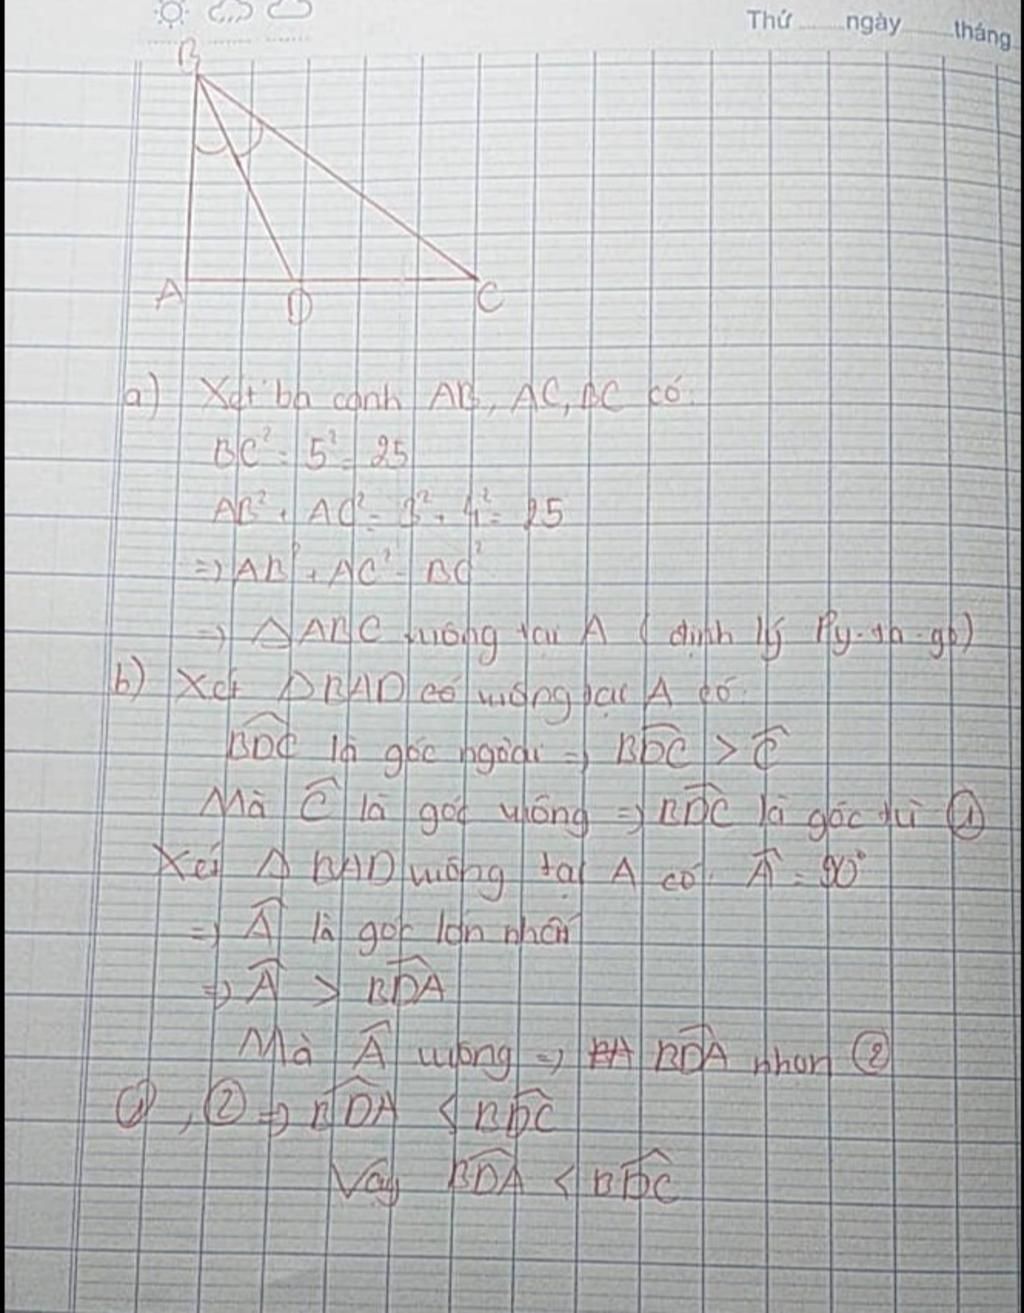 Thứ ngày tháng
B
A D C
a) Xét ba cạnh AB, AC, BC có:
BC² = 5² = 25
AB² + AC² = 3² + 4² = 25
=> AB² + AC² = BC²
=> △ABC vuông tại A ( định lý Py-ta-go)
b) Xét △BAD có vuông tại A có:
\widehat{BDC} là góc ngoài => \widehat{BDC} > \widehat{C}
Mà \widehat{C} là góc vuông => \widehat{BDC} là góc tù ①
Xét △ BAD vuông tại A có: \widehat{A} = 90°
=> \widehat{A} là góc lớn nhất
=> \widehat{A} > \widehat{BDA}
Mà \widehat{A} vuông => \widehat{BDA} nhọn ②
①, ② => \widehat{BDA} < \widehat{BDC}
Vậy \widehat{BDA} < \widehat{BDC}